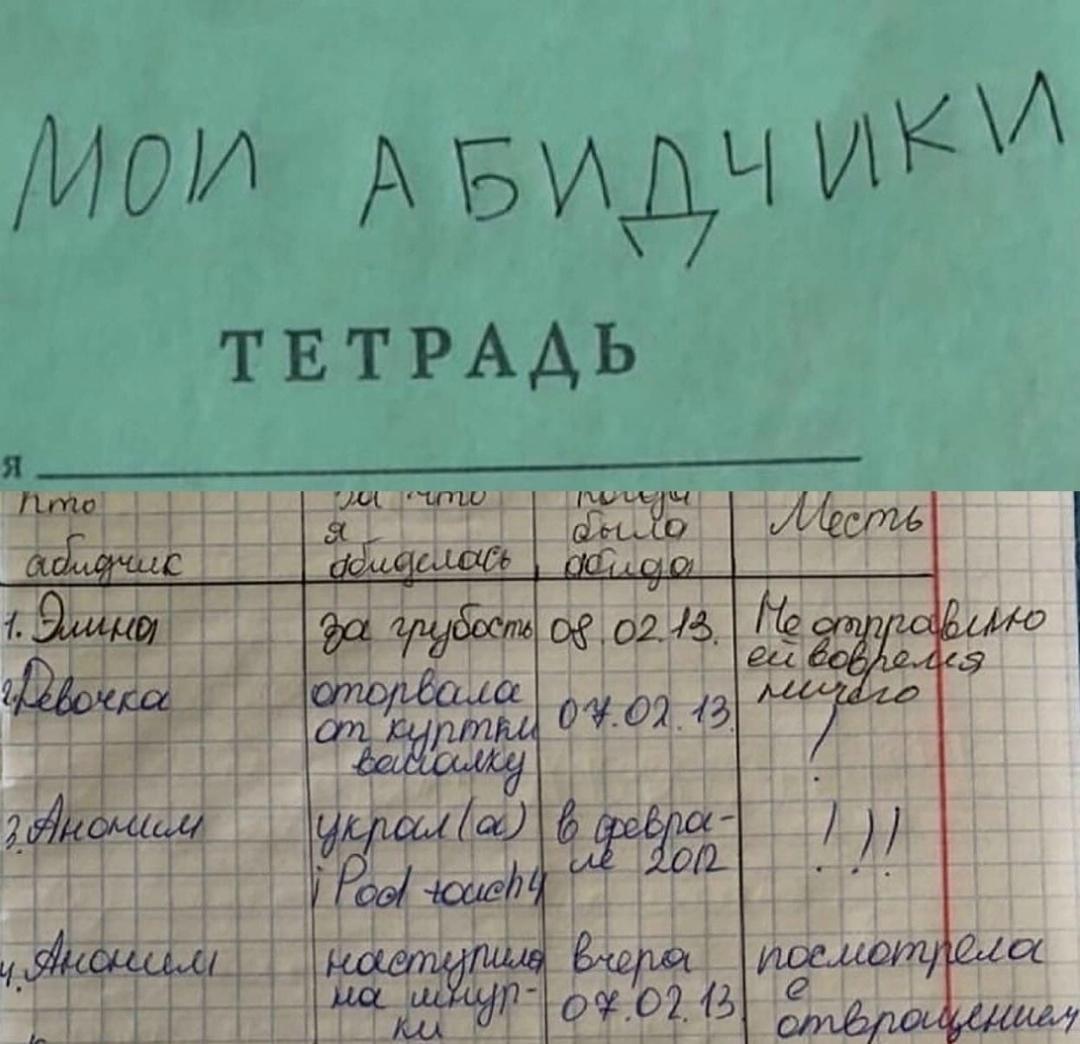 МОИ АБИДЧИКИ
ТЕТРАДЬ
я
Кто абидчик
За что я абиделась
когда была абида
Месть
1. Элина
за грубость
08.02.13.
Не отправлю
ей вовремя
ничего
2. Девочка
оторвала
от куртки
вешалку
07.02.13.
!
3. Аноним
украл(а)
iPod touch 4
в февра-
ле 2012
!!!
4. Аноним
наступила
на шнур-
ки
вчера
07.02.13.
посмотрела
с
отвращением